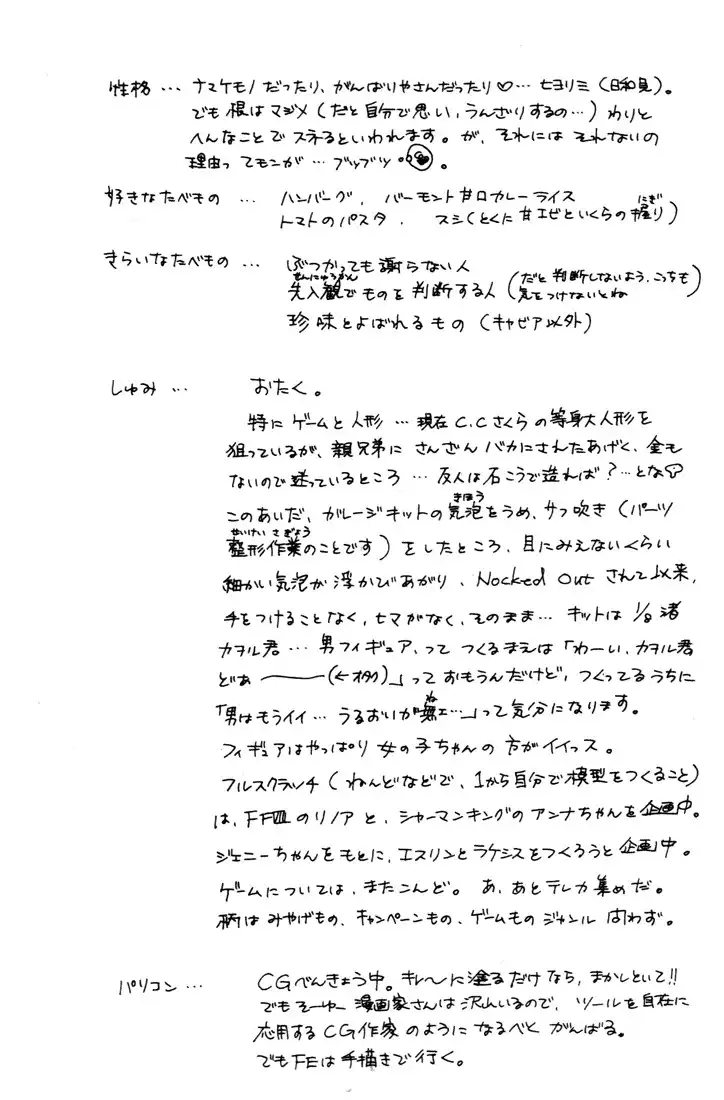 性格… ナマケモノだったり、がんばりやさんだったり♡… 七ヨリミ(日和見)。
でも根はマジメ(だと自分で思い、うんざりするの…)わりと
へんなことでスネるといわれます。が、それにはそれなりの
理由ってモンが… ブツブツ。
好きなたべもの … ハンバーグ、バーモント甘口カレーライス
トマトのパスタ、スシ(とくに甘エビといくらの握り)
にぎ
きらいなたべもの … ぶつかっても謝らない人
せんにゅうかん
先入観でものを判断する人(だと判断しないよう、こっちも気をつけないとね)
珍味とよばれるもの(キャビア以外)
しゅみ… おたく。
特にゲームと人形… 現在C.Cさくらの等身大人形を
狙っているが、親兄弟にさんざんバカにされたあげく、金も
ないので迷っているところ… 友人は石こうで造れば?…とな
きほう
このあいだ、ガレージキットの気泡をうめ、サフ吹き(パーツ
せいけい さぎょう
整形作業のことです)をしたところ、目にみえないくらい
細かい気泡が浮かびあがり、Nocked Outされて以来、
手をつけることなく、ヒマがなく、そのまま… キットは1/8渚
カヲル君… 男フィギュア、ってつくるまえは「わーい、カヲル君
どぁ――(←オタク)」っておもうんだけど、つくってるうちに
ね
「男はもうイイ… うるおいが無ェ…」って気分になります。
フィギュアはやっぱり女の子ちゃんの方がイイっス。
フルスクラッチ(ねんどなどで、1から自分で模型をつくること)
は、FFⅧのリノアと、シャーマンキングのアンナちゃんを企画中。
ジェニーちゃんをもとに、エスリンとラケシスをつくろうと企画中。
ゲームについては、またこんど。あ、あとテレカ集めだ。
柄はみやげもの、キャンペーンもの、ゲームものジャンル問わず。
パソコン… CGべんきょう中。キレ〜に塗るだけなら、まかしといて!!
でもそーゆー漫画家さんは沢山いるので、ツールを自在に
応用するCG作家のようになるべくがんばる。
でもFEは手描きで行く。